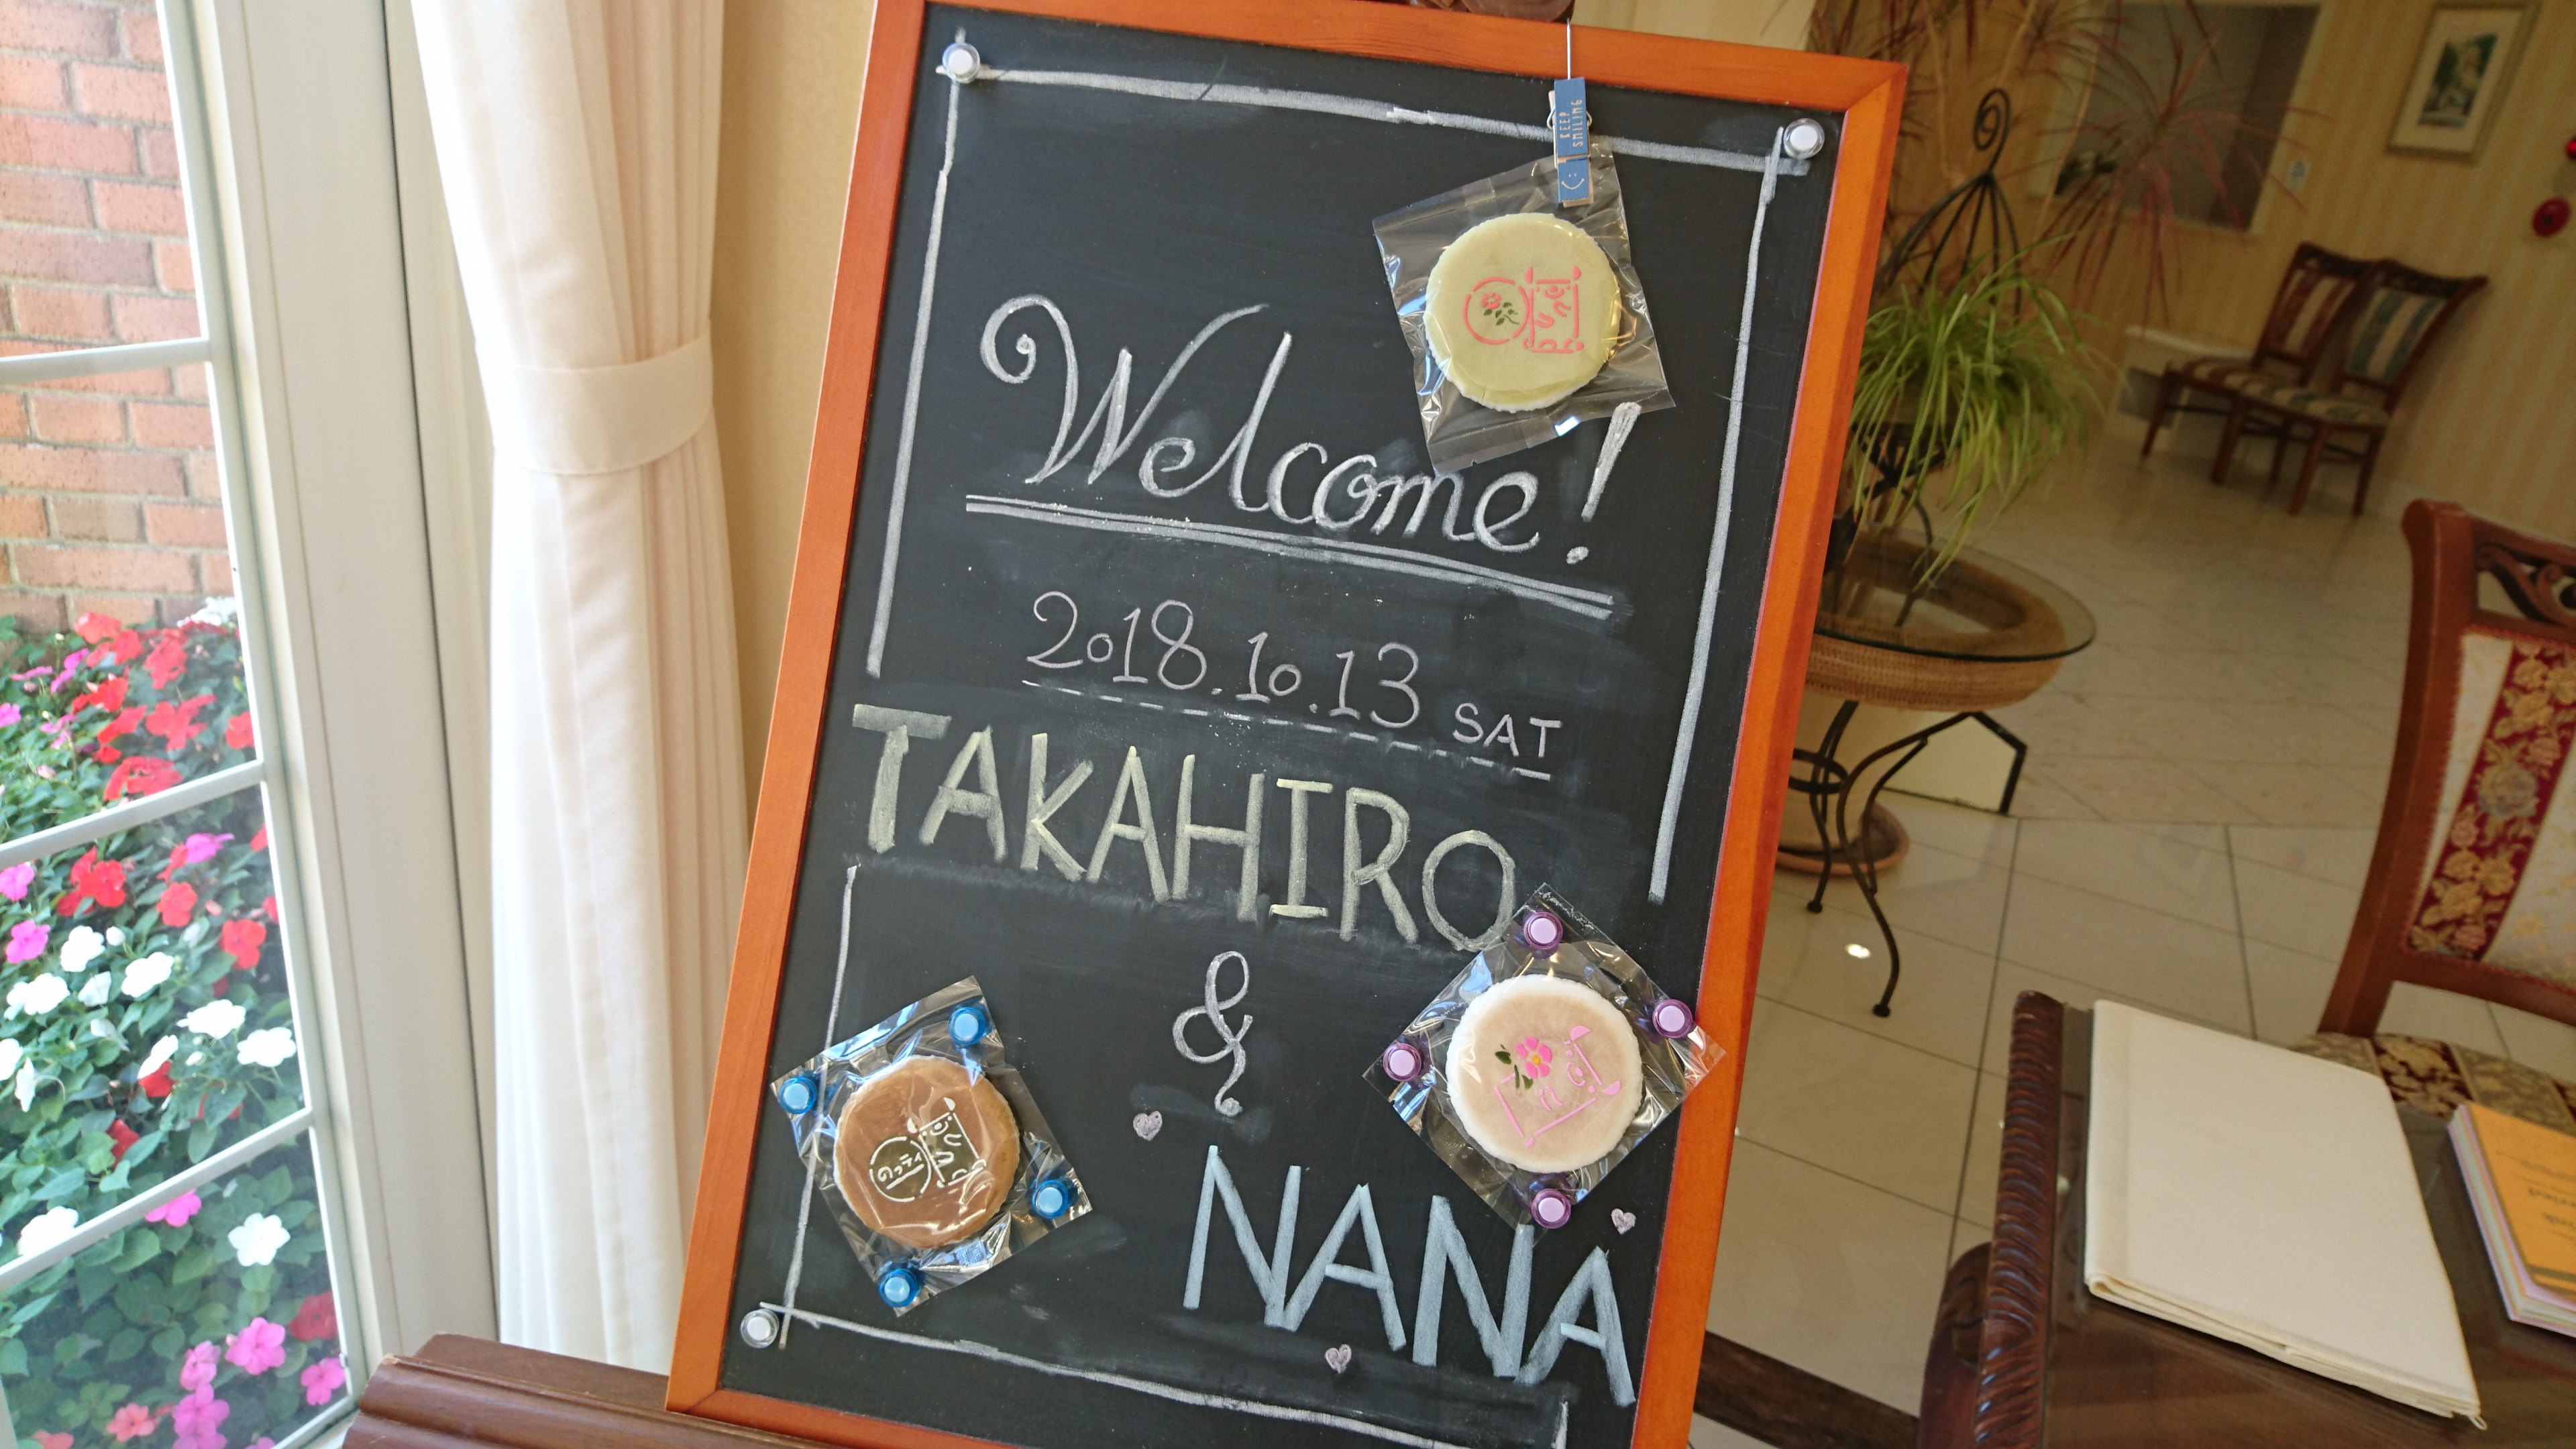 KEEP
SMILING
(:
Welcome!
2018.10.13 SAT
TAKAHIRO
&
NANA